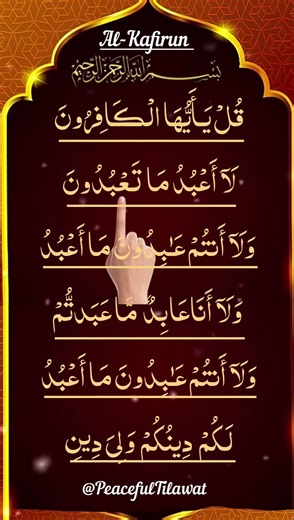 Al-Kafirun
بِسْمِ اللَّهِ الرَّحْمَٰنِ الرَّحِيمِ
قُلْ يَـٰٓأَيُّهَا الْكَافِرُونَ
لَآ أَعْبُدُ مَا تَعْبُدُونَ
وَلَآ أَنتُمْ عَـٰبِدُونَ مَآ أَعْبُدُ
وَلَآ أَنَا عَابِدٌ مَّا عَبَدتُّمْ
وَلَآ أَنتُمْ عَـٰبِدُونَ مَآ أَعْبُدُ
لَكُمْ دِينُكُمْ وَلِيَ دِينِ
@PeacefulTilawat